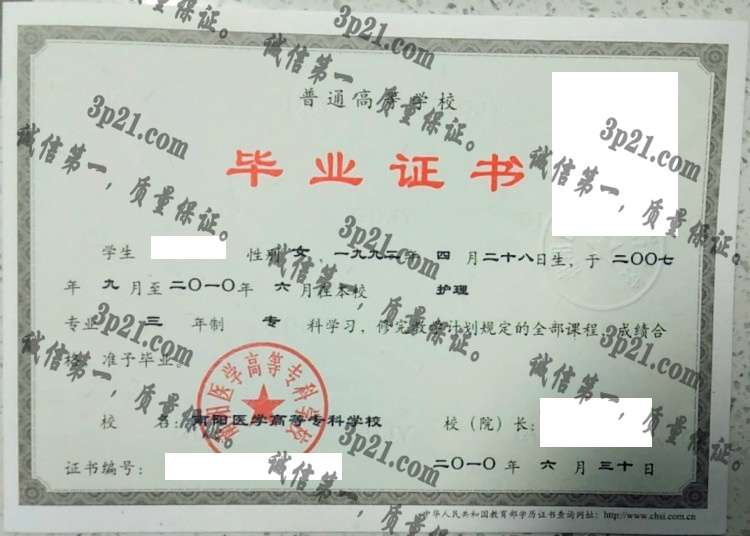 普通高等学校
毕业证书
学生 性别 女 一九九二年 四 月二十八日生，于 二〇〇七
年 九 月至二〇一〇年 六 月在本校 护理
专业 三 年制 专 科学习，修完教学计划规定的全部课程，成绩合
格，准予毕业。
南阳医学高等专科学校
校 名：南阳医学高等专科学校 校（院）长：
证书编号： 二〇一〇年 六 月 三十日
中华人民共和国教育部学历证书查询网址：http://www.chsi.com.cn
3p21.com
诚信第一，质量保证。
3p21.com
诚信第一，质量保证。
3p21.com
诚信第一，质量保证。
3p21.com
诚信第一，质量保证。
3p21.com
诚信第一，质量保证。
3p21.com
诚信第一，质量保证。
3p21.com
诚信第一，质量保证。
3p21.com